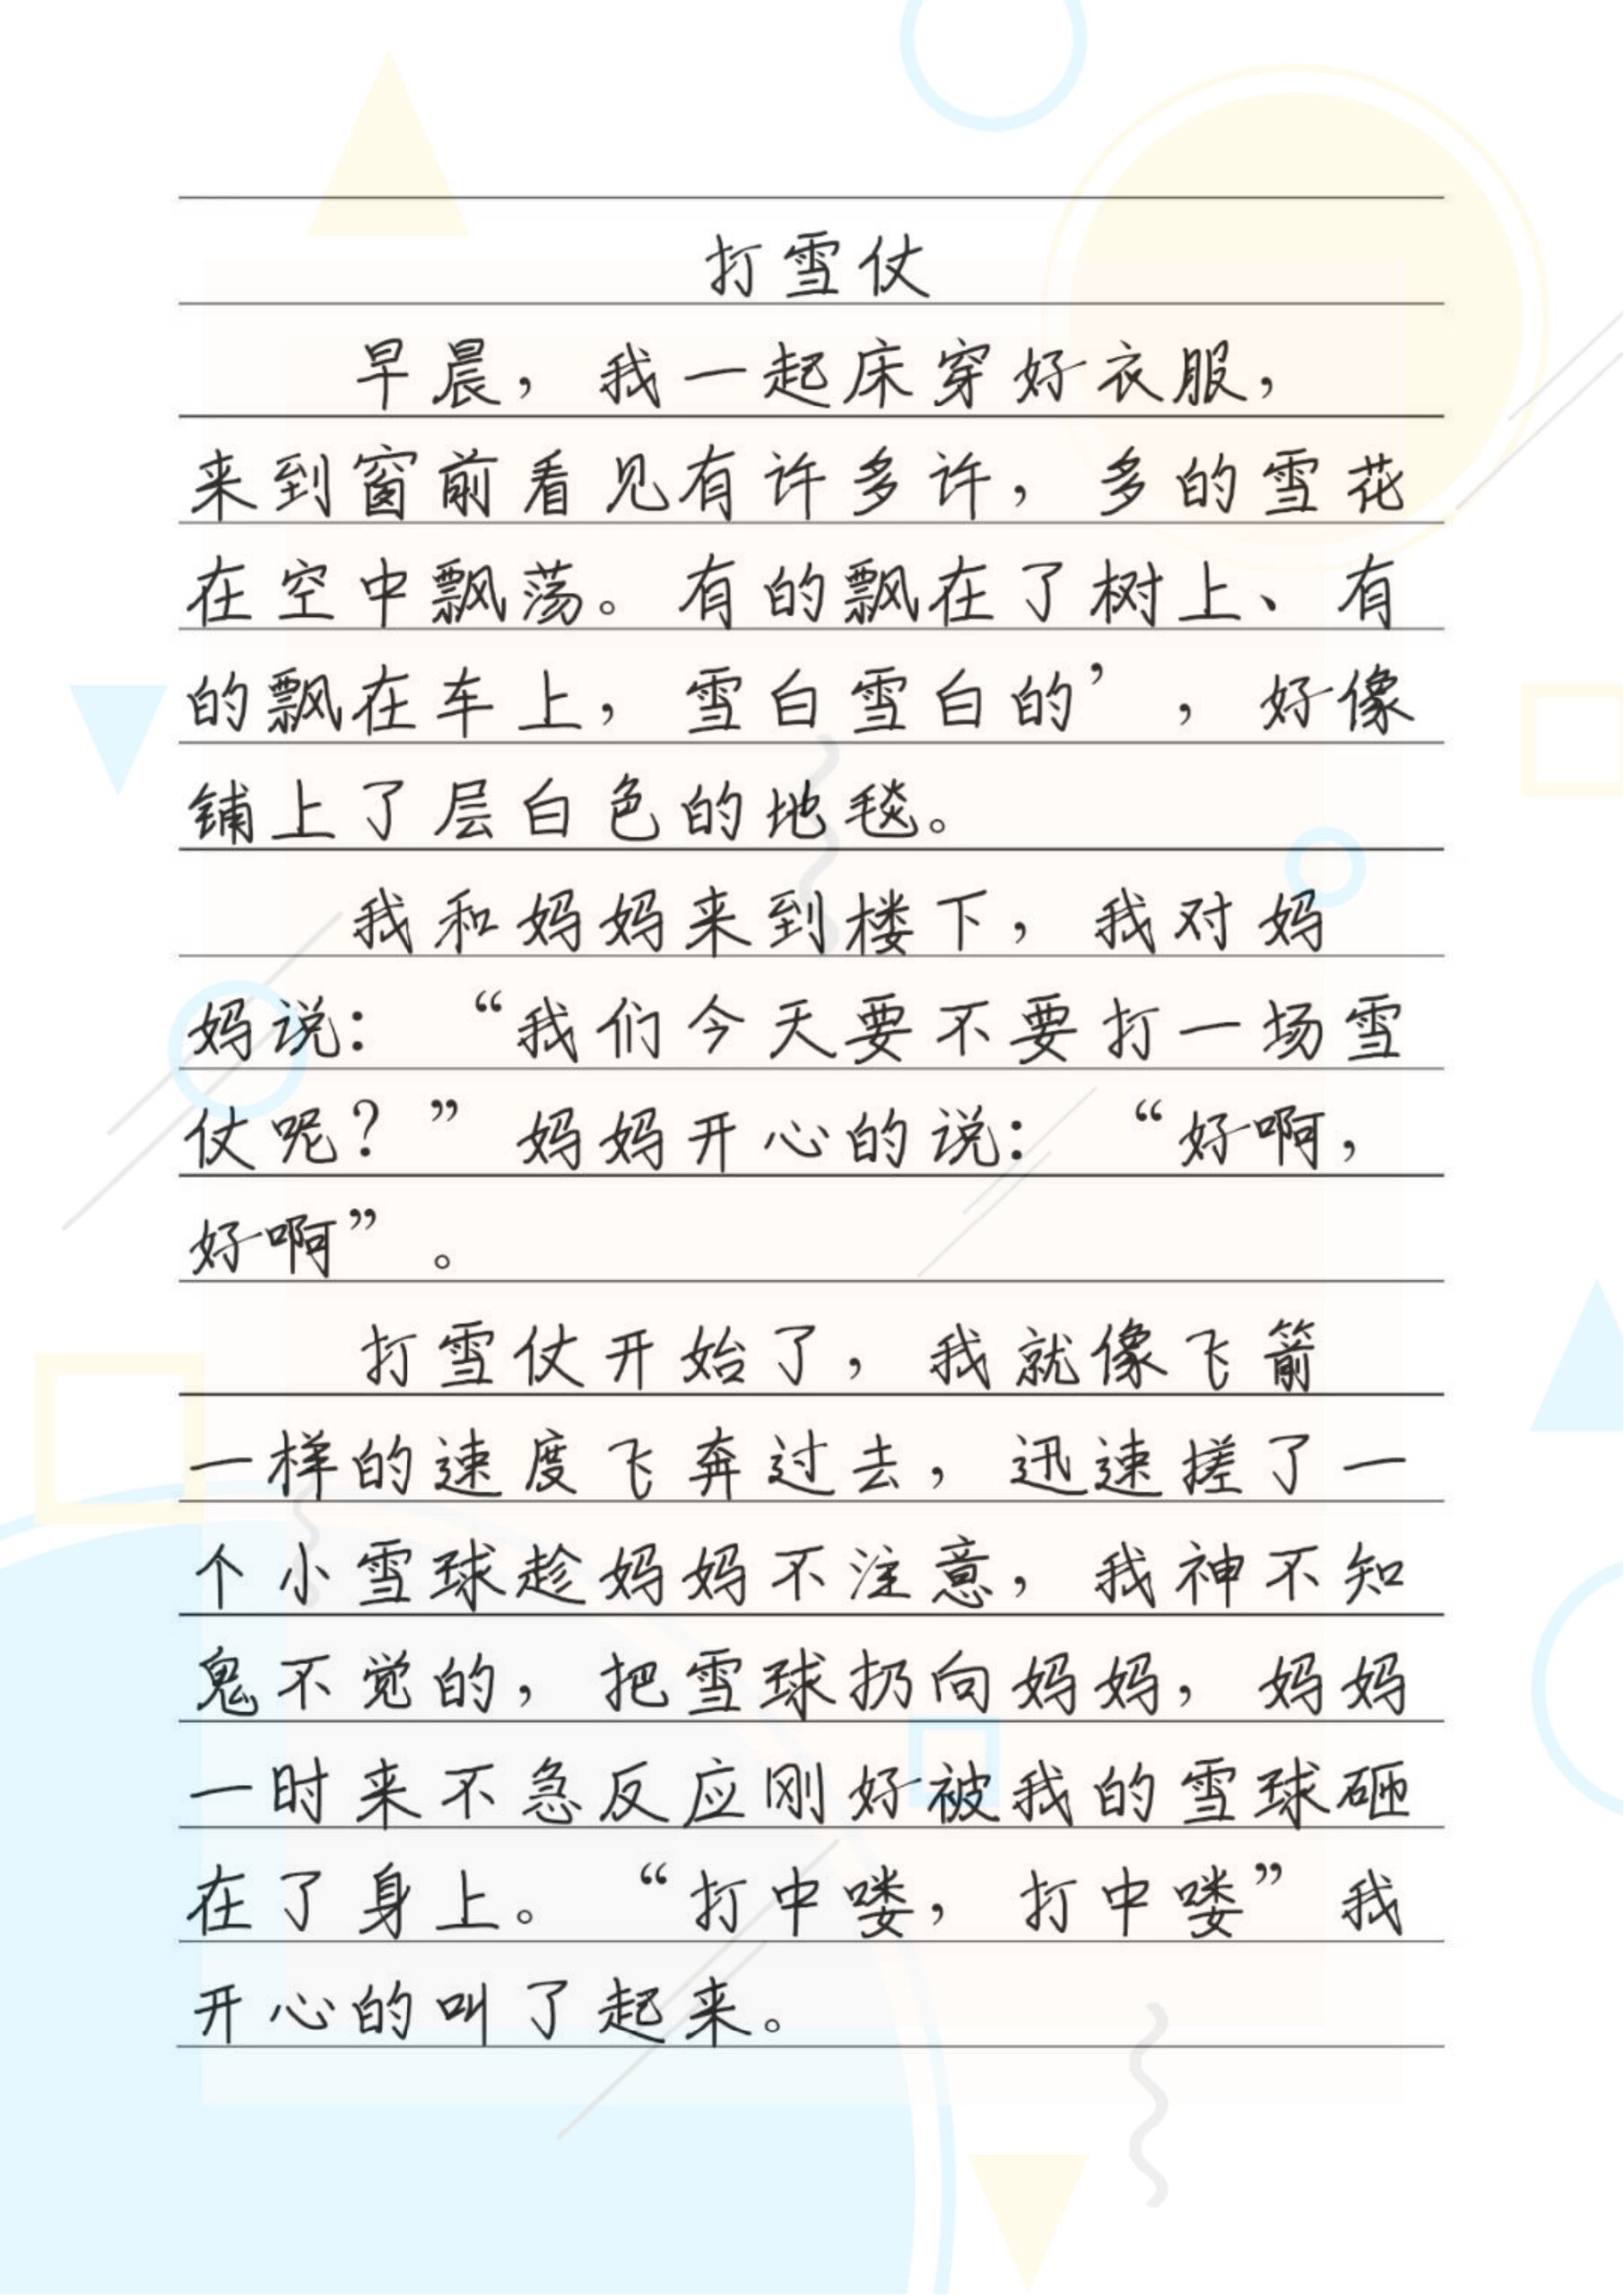 打雪仗
早晨，我一起床穿好衣服，
来到窗前看见有许多许，多的雪花
在空中飘荡。有的飘在了树上、有
的飘在车上，雪白雪白的’，好像
铺上了层白色的地毯。
我和妈妈来到楼下，我对妈
妈说：“我们今天要不要打一场雪
仗呢？”妈妈开心的说：“好啊，
好啊”。
打雪仗开始了，我就像飞箭
一样的速度飞奔过去，迅速搓了一
个小雪球趁妈妈不注意，我神不知
鬼不觉的，把雪球扔向妈妈，妈妈
一时来不急反应刚好被我的雪球砸
在了身上。“打中喽，打中喽”我
开心的叫了起来。